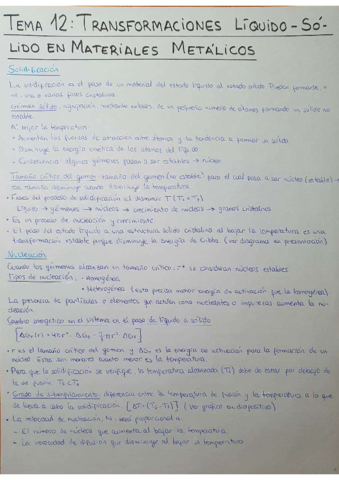 TEMA 12: TRANSFORMACIONES LÍQUIDO-SÓ-
LIDO EN MATERIALES METÁLICOS
Solidificación
La solidificación es el paso de un material del estado líquido al estado sólido. Pueden formarse
uno o varios fases cristalinas.
Germen sólido: agrupación, mediante enlaces, de un pequeño número de átomos formando un sólido no
estable.
Al bajar la temperatura:
• Aumentan las fuerzas de atracción entre átomos y la tendencia a formar un sólido.
• Disminuye la energía cinética de los átomos del líquido
• Consecuencia: algunos gérmenes pasan a ser estables → núcleo
Tamaño crítico del germen: tamaño del germen (no estable) para el cual pasa a ser núcleo (estable) →
ese tamaño disminuye cuando disminuye la temperatura
• Fases del proceso de solidificación al disminuir T (T < Tf)
Líquido → gérmenes → núcleos → crecimiento de núcleos → granos cristalinos
• Es un proceso de nucleación y crecimiento
• El paso del estado líquido a una estructura sólida cristalina al bajar la temperatura es una
transformación estable porque disminuye la energía de Gibbs. (ver diagramas en presentación)
Nucleación
Cuando los gérmenes alcanzan un tamaño crítico, r* se consideran núcleos estables
Tipos de nucleación: - Homogénea
- Heterogénea (esta precisa menor energía de activación que la homogénea)
La presencia de partículas o elementos que actúan como nucleantes o impurezas aumenta la nu-
cleación.
Cambio energético en el sistema en el paso de líquido a sólido
• r es el tamaño crítico del germen y es la energía de activación para la formación de un
núcleo. Estos son menores cuanto menor es la temperatura.
• Para que la solidificación se verifique, la temperatura alcanzada (T) debe de estar por debajo de
la de fusión T < Tf
• Grado de subenfriamiento: diferencia entre la temperatura de fusión y la temperatura a la que
se lleva a cabo la solidificación. (ver gráfico en diapositiva)
• La velocidad de nucleación, N, será proporcional a:
- El número de núcleos que aumenta al bajar la temperatura
- La velocidad de difusión que disminuye al bajar la temperatura